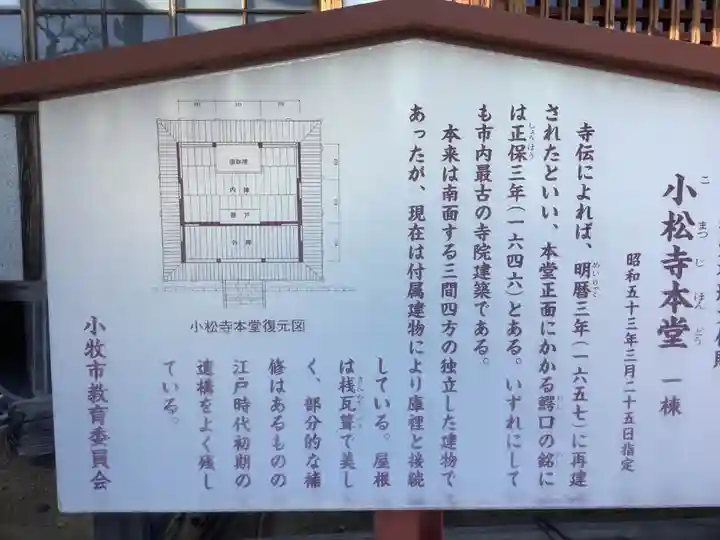 小松寺本堂 一棟
こまつじほんどう
昭和五十三年三月二十五日指定
寺伝によれば、明暦三年(一六五七)に再建
めいりゃく
されたといい、本堂正面にかかる鰐口の銘に
は正保三年(一六四六)とある。いずれにして
しょうほう
も市内最古の寺院建築である。
本来は南面する三間四方の独立した建物で
あったが、現在は付属建物により庫裡と接続
している。屋根
は桟瓦葺で美し
く、部分的な補
修はあるものの
江戸時代初期の
遺構をよく残し
ている。
小牧市教育委員会
内陣
外陣
小松寺本堂復元図